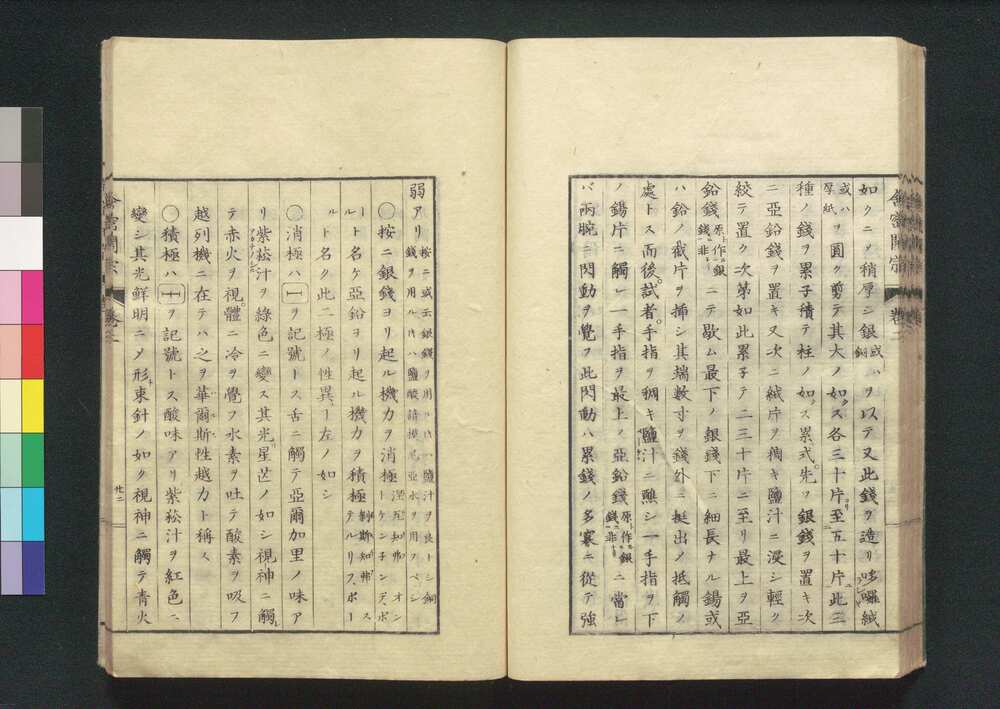 如クニㄨ稍厚シ銀或ハ銅ハヲ以テ又此錢ヲ造リ哆囉絨
或ハ厚紙ヲ圓ク剪テ其大ノ如クス各三十片至五十片此三
種ノ錢ヲ累子積テ柱ノ如ス累弍先ツ銀錢ヲ置キ次
ニ亞鉛錢ヲ置キ又次ニ絨片ヲ鹽汁ニ浸シ輕ク
絞テ置ク次第如此累子テ二三十片ニ至リ最上ヲ亞
鉛錢原作銀錢非ニテ歇ム最下ノ銀錢下ニ細長ナル錫或
ハ鉛ノ截片ヲ挿シ其端數寸ヲ錢外ニ挺出ノ抵觸ノ
處トス而後試者手指ヲ稠キ鹽汁ニ蘸シ一手指ヲ下
ノ錫片ニ觸レ一手指ヲ最上ノ亞鉛錢原作銀錢非ニ當レ
バ兩腕ニ閃動ヲ覺フ此閃動ハ累錢ノ多寡ニ從テ強
弱アリ按ニ或云銀錢ヲ用ルハ鹽汁ヲ良トシ銅錢ヲ用ルハ鹽酸諳摸尼亞水ヲ用フベシ
◯按ニ銀錢ヨリ起ル機力ヲ消極トケンチンデ、ポールト名ケ亞鉛ヨリ起ル機力ヲ積極ステルリフ、ポー
ルト名ク此二極ノ性異ナルコト左ノ如シ
◯消極ハ一ヲ記號トス舌ニ觸テ亞爾加里ノ味ア
リ紫菘汁ヲ綠色ニ變ス其光星芒ノ如シ視神ニ觸
テ赤火ヲ視體ニ冷ヲ覺フ水素ヲ吐テ酸素ヲ吸フ
越列機ニ在テハ之ヲ華爾斯性越力ト稱ス
◯積極ハ十ヲ記號トス酸味アリ紫菘汁ヲ紅色ニ
變シ其光鮮明ニㄨ形束針ノ如ク視神ニ觸テ青火
舎密開宗 卷二
廿二